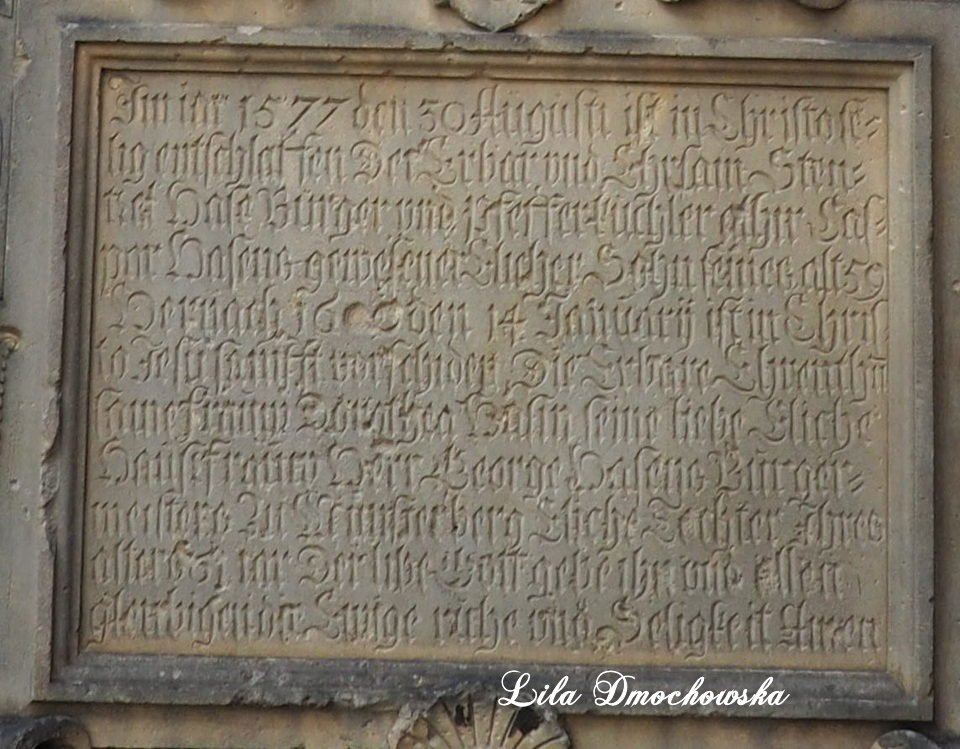 Im iar 1577 den 30 Augusti ist in Christo se-
lig entschlaffen Der Erbar und Ehrsam Sten-
Hase Bürger und Pfefferküchler Cas-
par Hasens gewesener Elicher Sohn seines alt 59
Hernach den 14 Januarij ist in Chris
to Jesu sanfft vorschiden Die Erbare Ehrenthu
same fraw Dorothea Hasin seine liebe Eliche
Hausfrauw Herr George Hasens Bürger-
meisters Zu Münsterberg Eliche Tochter Ihres
alters iar Der libe Gott gebe ihn und Allen
gleubigen Ewige ruhe und Seligkeit Amen
Lila Dmochowska